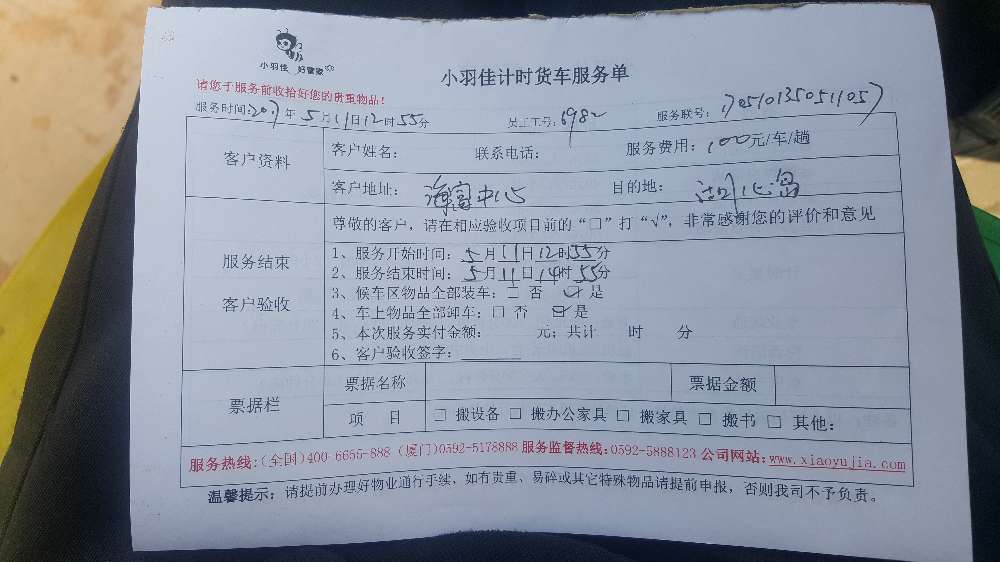 小羽佳 好管家
小羽佳计时货车服务单
请您于服务前收拾好您的贵重物品！
服务时间:2017年5月11日12时55分 员工工号:6982 服务联号:170510135051057
客户资料
客户姓名: 联系电话: 服务费用:100元/车/趟
客户地址: 海富中心 目的地: 湖心岛
服务结束
客户验收
尊敬的客户，请在相应验收项目前的“□”打“√”，非常感谢您的评价和意见
1、服务开始时间: 5月11日12时55分
2、服务结束时间: 5月11日14时55分
3、候车区物品全部装车: □ 否 ☑ 是
4、车上物品全部卸车: □ 否 ☑ 是
5、本次服务实付金额: 元；共计 时 分
6、客户验收签字:
票据栏
票据名称 票据金额
项 目 □ 搬设备 □ 搬办公家具 □ 搬家具 □ 搬书 □ 其他:
服务热线:(全国)400-6655-888 (厦门)0592-5178888 服务监督热线:0592-5888123 公司网站:www.xiaoyujia.com
温馨提示: 请提前办理好物业通行手续，如有贵重、易碎或其它特殊物品请提前申报，否则我司不予负责。